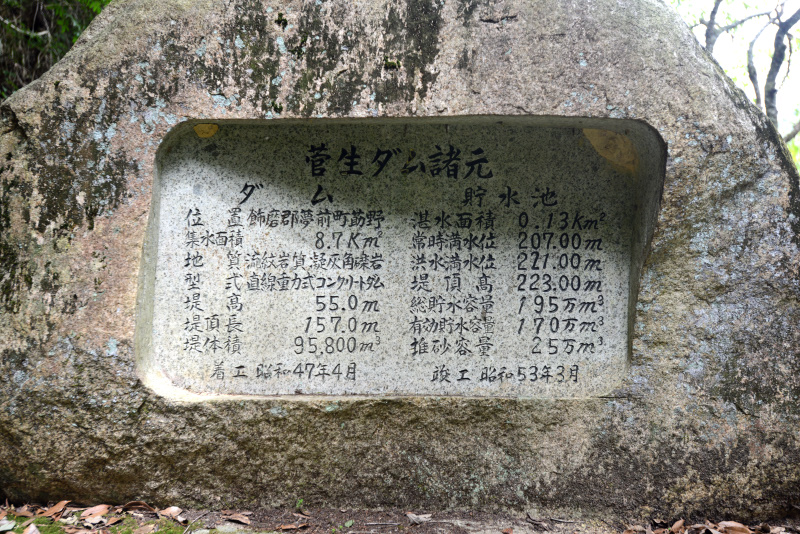 菅生ダム諸元
ダム
位置 飾磨郡夢前町莇野
集水面積 8.7Km²
地質 流紋岩質凝灰角礫岩
型式 直線重力式コンクリートダム
堤高 55.0m
堤頂長 157.0m
堤体積 95.800m³
着工 昭和47年4月
貯水池
湛水面積 0.13Km²
常時満水位 207.00m
洪水満水位 221.00m
堤頂高 223.00m
総貯水容量 195万m³
有効貯水容量 170万m³
堆砂容量 25万m³
竣工 昭和53年3月